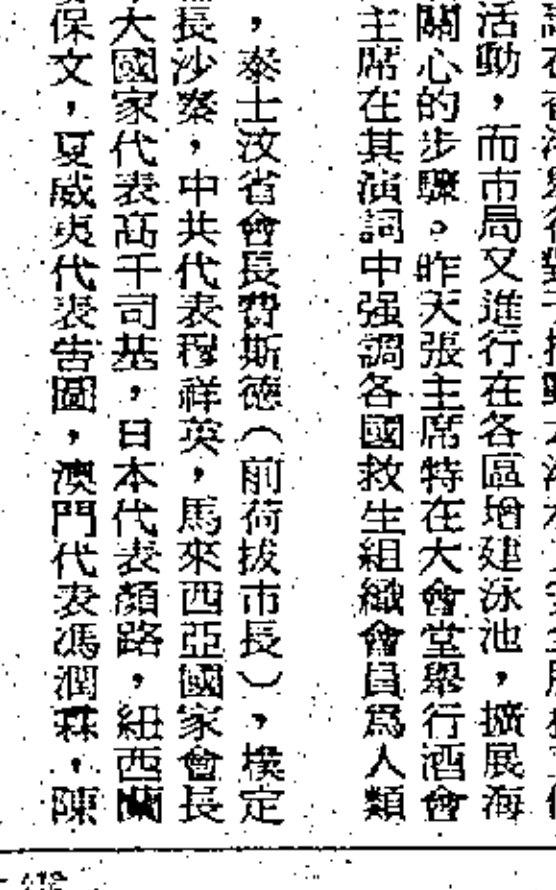 活動，而市局又進行在各區增建泳池，擴展海
關心的步驟。昨天張主席特在大會堂舉行酒會
主席在其演詞中强調各國救生組織會員爲人類
，泰士汶省會長費斯德（前荷拔市長），樸定
長沙霖，中共代表程祥英，馬來西亞國家會長
大國家代表高千司基，日本代表顏路，紐西蘭
保文，夏威夷代表告圖，澳門代表馮潤霖，陳